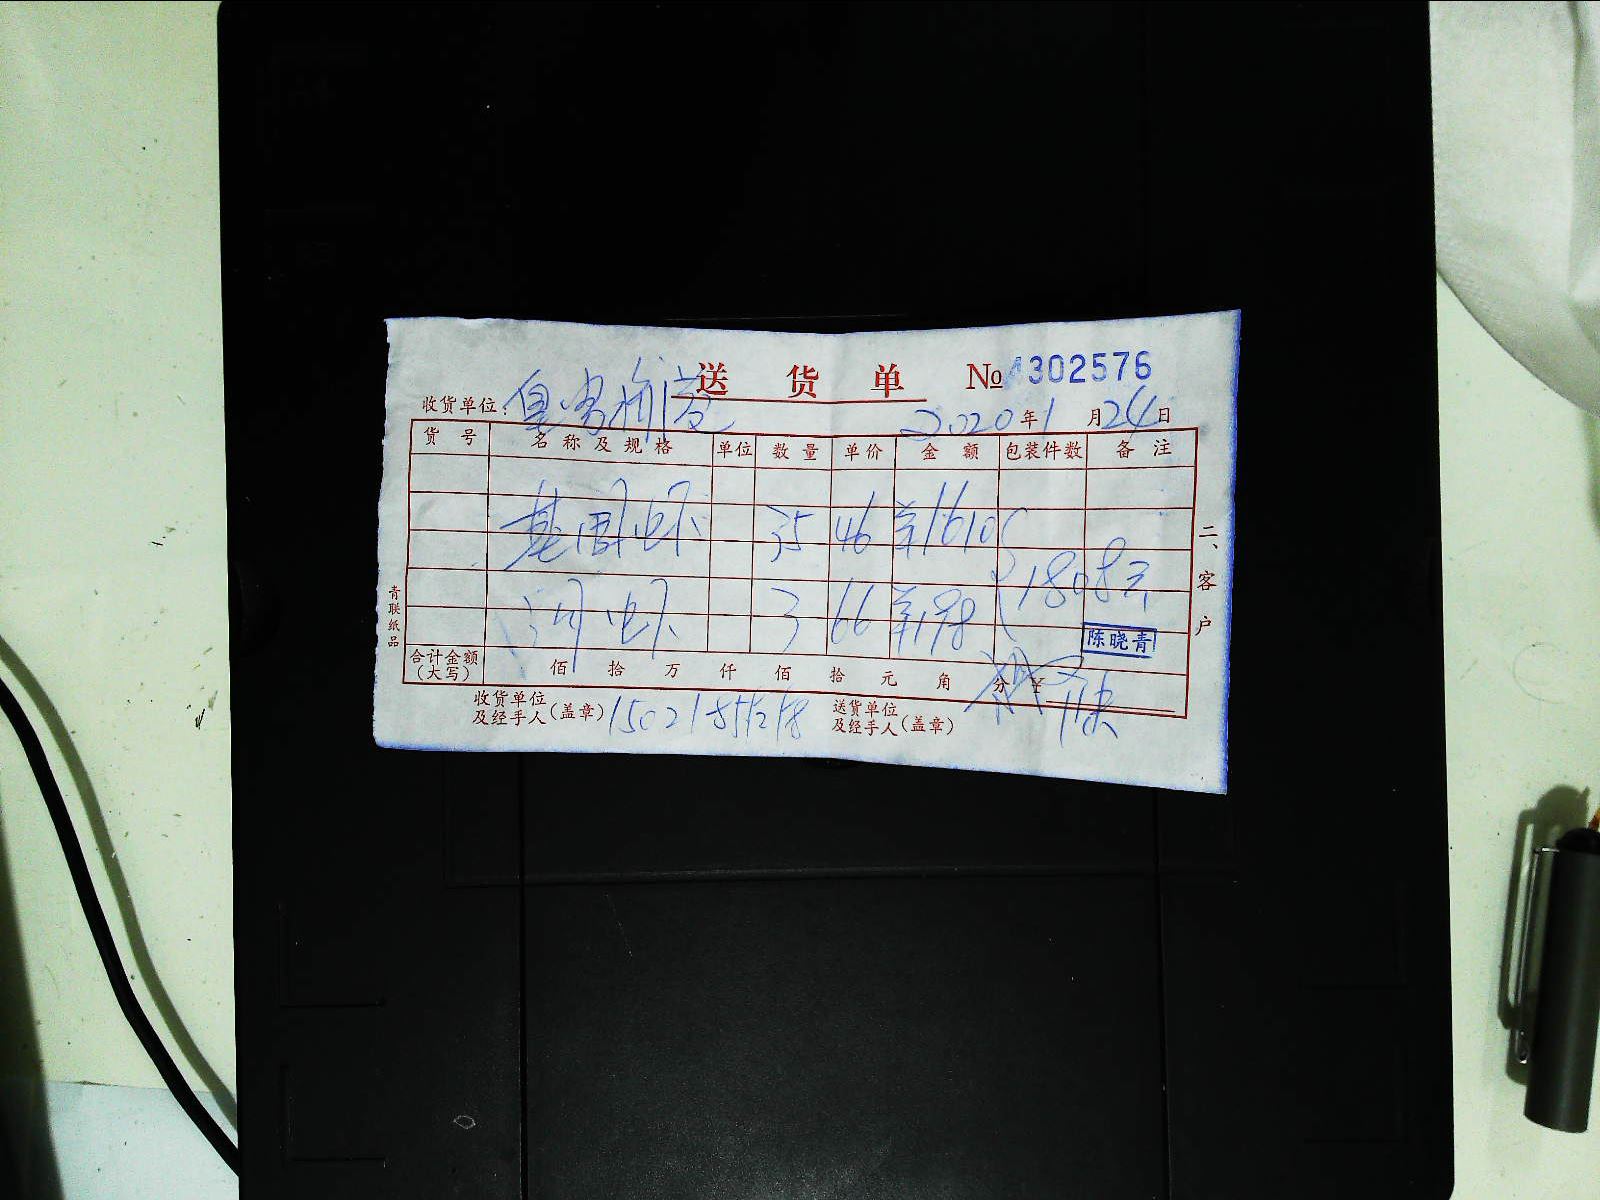 送货单 № 4302576
收货单位： 2020年1月24日
货号 名称及规格 单位 数量 单价 金额 包装件数 备注
基围虾 35 46 1610
1808元
河虾 3 66 198
陈晓青
合计金额（大写） 佰 拾 万 仟 佰 拾 元 角 分 ¥
收货单位及经手人（盖章） 15021851218 送货单位及经手人（盖章）
二、客户
青联纸品